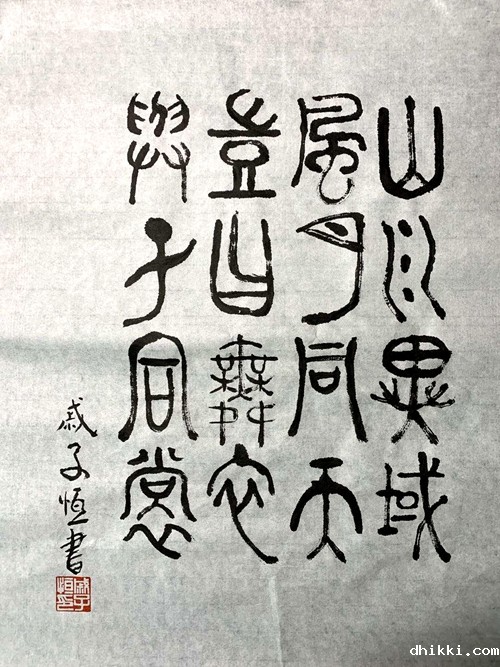 山川異域
風月同天
豈曰無衣
與子同裳
戚子恒書
戚子恒印
dhikki.com